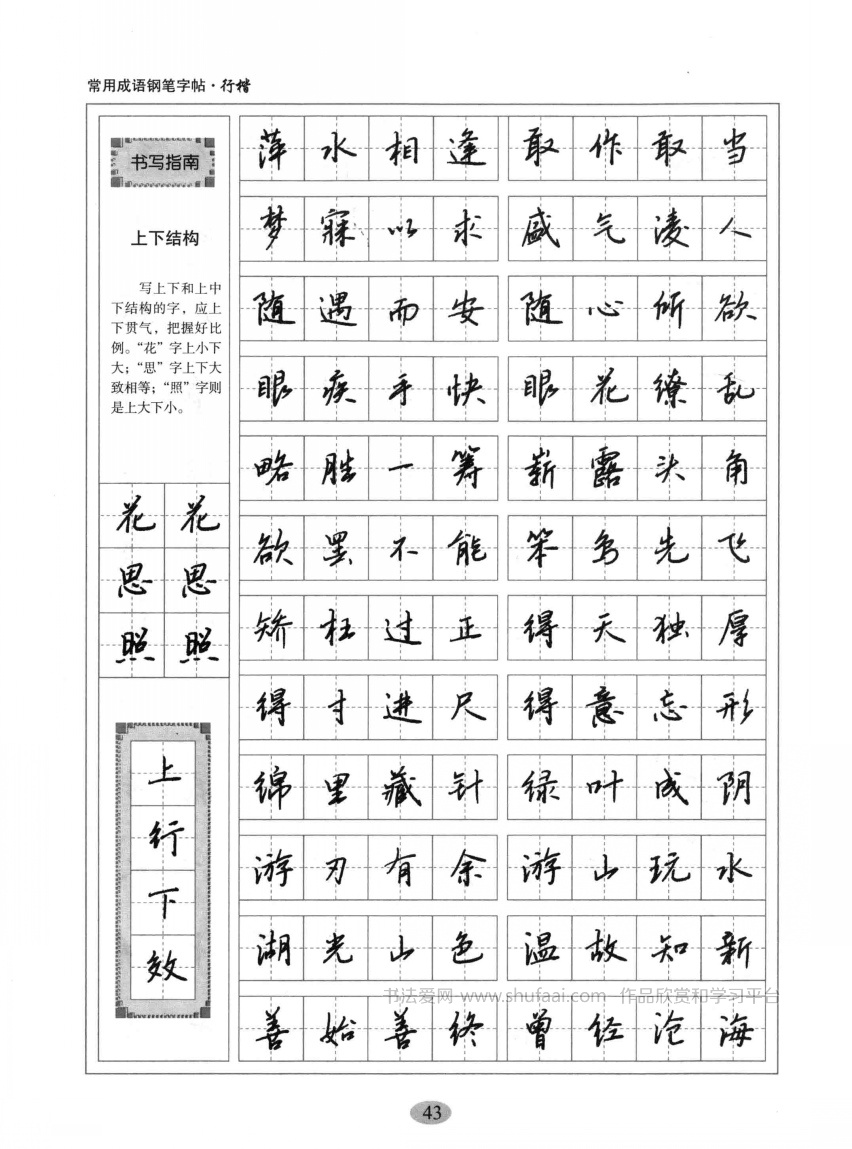 常用成语钢笔字帖·行楷
书写指南
上下结构
写上下和上中
下结构的字，应上
下贯气，把握好比
例。“花”字上小下
大；“思”字上下大
致相等；“照”字则
是上大下小。
花 花
思 思
照 照
上
行
下
效
萍水相逢 敢作敢当
梦寐以求 盛气凌人
随遇而安 随心所欲
眼疾手快 眼花缭乱
略胜一筹 崭露头角
欲罢不能 笨鸟先飞
矫枉过正 得天独厚
得寸进尺 得意忘形
绵里藏针 绿叶成阴
游刃有余 游山玩水
湖光山色 温故知新
书法爱网 www.shufaai.com 作品欣赏和学习平台
善始善终 曾经沧海
43